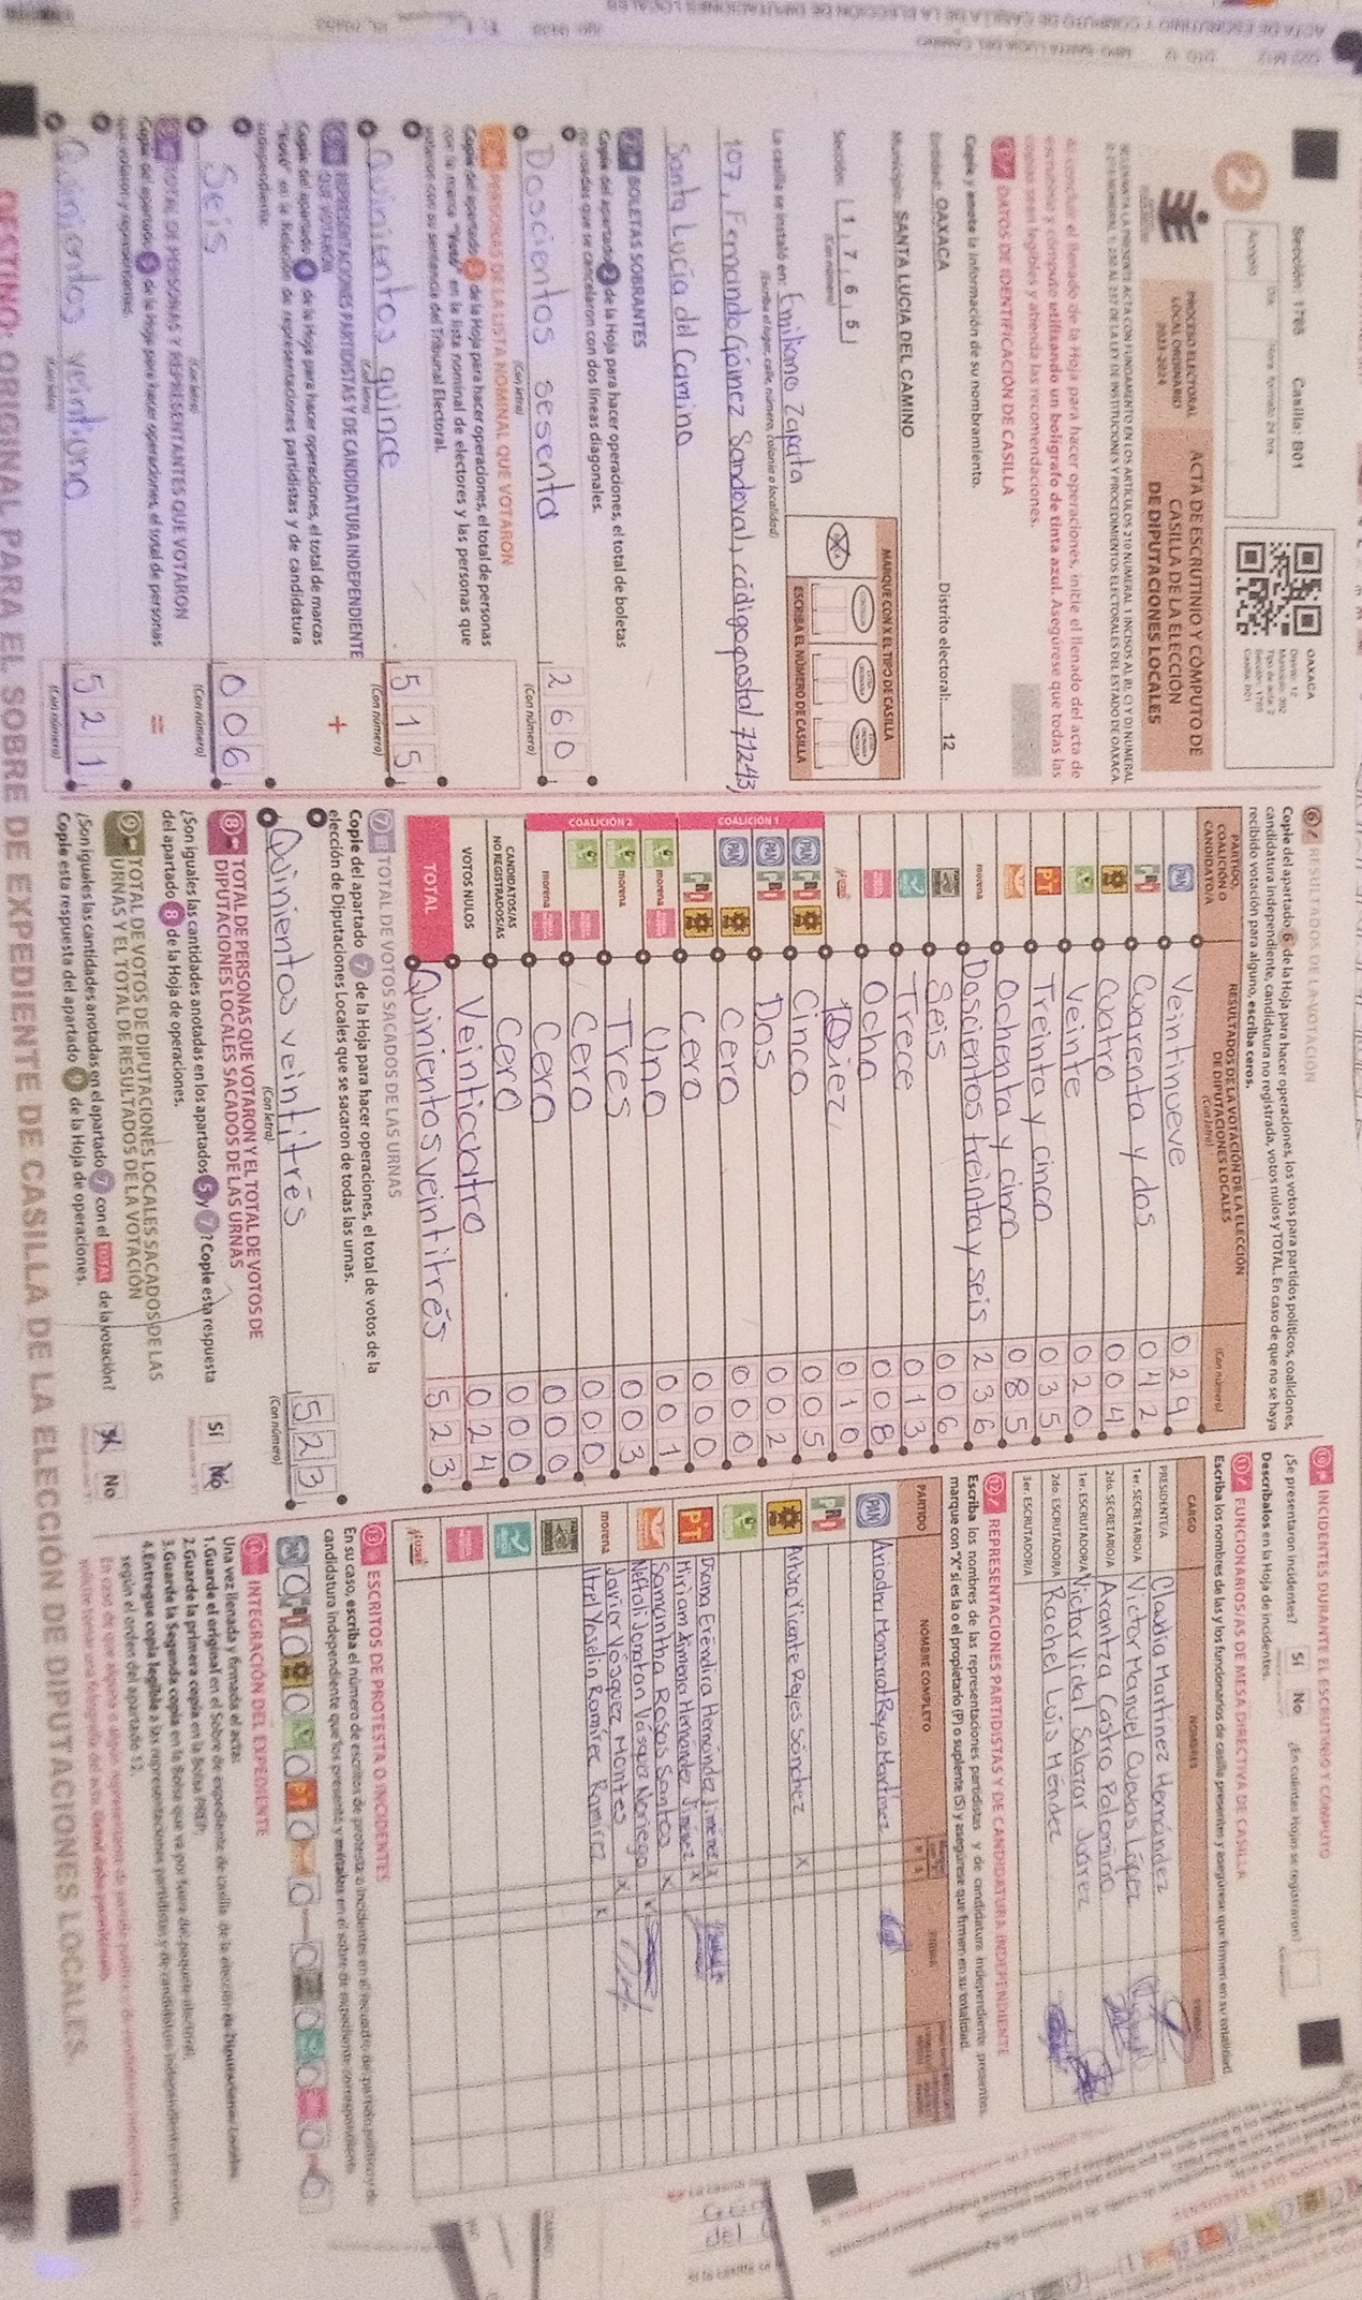 Sección: 1765 Casilla: B01
2
OAXACA
Distrito: 12
PROCESO ELECTORAL
LOCAL ORDINARIO
2023-2024
ACTA DE ESCRUTINIO Y CÓMPUTO DE
CASILLA DE LA ELECCIÓN
DE DIPUTACIONES LOCALES
Al concluir el llenado de la Hoja para hacer operaciones, inicie el llenado del acta de
escrutinio y cómputo utilizando un bolígrafo de tinta azul. Asegúrese que todas las
copias sean legibles y atienda las recomendaciones.
1 DATOS DE IDENTIFICACIÓN DE CASILLA
Copie y anote la información de su nombramiento.
Entidad: OAXACA Distrito electoral: 12
Municipio: SANTA LUCIA DEL CAMINO
Sección: 1 7 6 5
(Con número)
MARQUE CON X EL TIPO DE CASILLA
ESCRIBA EL NÚMERO DE CASILLA
La casilla se instaló en: Emiliano Zapata
(Escriba el lugar, calle, número, colonia o localidad)
107, Fernando Gómez Sandoval, código postal 71243,
Santa Lucía del Camino
2 BOLETAS SOBRANTES
Copie del apartado 2 de la Hoja para hacer operaciones, el total de boletas
no usadas que se cancelaron con dos líneas diagonales.
Doscientos sesenta 260
(Con letra) (Con número)
3 PERSONAS DE LA LISTA NOMINAL QUE VOTARON
Copie del apartado 3 de la Hoja para hacer operaciones, el total de personas
con la marca "Votó" en la lista nominal de electores y las personas que
votaron con su sentencia del Tribunal Electoral.
Quinientos quince 515
(Con letra) (Con número)
4 REPRESENTACIONES PARTIDISTAS Y DE CANDIDATURA INDEPENDIENTE
QUE VOTARON
Copie del apartado 4 de la Hoja para hacer operaciones, el total de marcas
"Votó" en la Relación de representaciones partidistas y de candidatura
independiente.
+
Seis 006
(Con letra) (Con número)
5 TOTAL DE PERSONAS Y REPRESENTANTES QUE VOTARON
Copie del apartado 5 de la Hoja para hacer operaciones, el total de personas
que votaron y representantes.
=
Quinientos veintiuno 521
(Con letra) (Con número)
6 RESULTADOS DE LA VOTACIÓN
Copie del apartado 6 de la Hoja para hacer operaciones, los votos para partidos políticos, coaliciones,
candidatura independiente, candidatura no registrada, votos nulos y TOTAL. En caso de que no se haya
recibido votación para alguno, escriba ceros.
PARTIDO,
COALICIÓN O
CANDIDATO/A
RESULTADOS DE LA VOTACIÓN DE LA ELECCIÓN
DE DIPUTACIONES LOCALES
(Con letra) (Con número)
PAN Veintinueve 029
PRI Cuarenta y dos 042
PRD Cuatro 004
Veinte 020
PT Treinta y cinco 035
Ochenta y cinco 085
morena Doscientos treinta y seis 236
Seis 006
Trece 013
Ocho 008
Diez 010
COALICIÓN 1
PAN PRI PRD Cinco 005
PAN PRI Dos 002
PAN PRD Cero 000
PRI PRD Cero 000
COALICIÓN 2
morena Uno 001
morena Tres 003
Cero 000
morena Cero 000
CANDIDATOS/AS
NO REGISTRADOS/AS Cero 000
VOTOS NULOS Veinticuatro 024
TOTAL Quinientos veintitrés 523
7 TOTAL DE VOTOS SACADOS DE LAS URNAS
Copie del apartado 7 de la Hoja para hacer operaciones, el total de votos de la
elección de Diputaciones Locales que se sacaron de todas las urnas.
Quinientos veintitrés 523
(Con letra) (Con número)
8 TOTAL DE PERSONAS QUE VOTARON Y EL TOTAL DE VOTOS DE
DIPUTACIONES LOCALES SACADOS DE LAS URNAS
¿Son iguales las cantidades anotadas en los apartados 5 y 7? Copie esta respuesta
del apartado 8 de la Hoja de operaciones.
Sí No
9 TOTAL DE VOTOS DE DIPUTACIONES LOCALES SACADOS DE LAS
URNAS Y EL TOTAL DE RESULTADOS DE LA VOTACIÓN
¿Son iguales las cantidades anotadas en el apartado 7 con el TOTAL de la votación?
Copie esta respuesta del apartado 9 de la Hoja de operaciones.
Sí No
10 INCIDENTES DURANTE EL ESCRUTINIO Y CÓMPUTO
¿Se presentaron incidentes? Sí No ¿En cuántas Hojas se registraron?
Descríbalos en la Hoja de incidentes.
11 FUNCIONARIOS/AS DE MESA DIRECTIVA DE CASILLA
Escriba los nombres de las y los funcionarios de casilla presentes y asegúrese que firmen en su totalidad.
CARGO NOMBRES FIRMAS
PRESIDENTE/A Claudia Martínez Hernández
1er. SECRETARIO/A Victor Manuel Cuevas López
2do. SECRETARIO/A Arantza Castro Palomino
1er. ESCRUTADOR/A Victor Vidal Salazar Juárez
2do. ESCRUTADOR/A Rachel Luis Méndez
3er. ESCRUTADOR/A
12 REPRESENTACIONES PARTIDISTAS Y DE CANDIDATURA INDEPENDIENTE
Escriba los nombres de las representaciones partidistas y de candidatura independiente presentes,
marque con "X" si es la o el propietario (P) o suplente (S) y asegúrese que firmen en su totalidad.
PARTIDO NOMBRE COMPLETO
PAN Ariadna Monserrat Reyes Martínez
PRI
PRD Arturo Vicente Reyes Sánchez X
PT Diana Eréndira Hernández Jiménez X
Miriam Ximena Hernández Jiménez X
Samantha Rosas Santos X
Neftali Jonatan Vásquez Noriega X
morena Javier Vásquez Montes X
Itzel Yeselin Ramírez Ramírez X
13 ESCRITOS DE PROTESTA O INCIDENTES
En su caso, escriba el número de escritos de protesta o incidentes en el recuadro del partido político y de
candidatura independiente que los presentó y métalos en el sobre de expediente correspondiente
14 INTEGRACIÓN DEL EXPEDIENTE
Una vez llenada y firmada el acta:
1. Guarde el original en el Sobre de expediente de casilla de la elección de Diputaciones Locales
2. Guarde la primera copia en la Bolsa PREP.
3. Guarde la Segunda copia en la Bolsa que va por fuera del paquete electoral.
4. Entregue copia legible a las representaciones partidistas y de candidatura independiente presentes,
según el orden del apartado 12.
DESTINO: ORIGINAL PARA EL SOBRE DE EXPEDIENTE DE CASILLA DE LA ELECCIÓN DE DIPUTACIONES LOCALES.